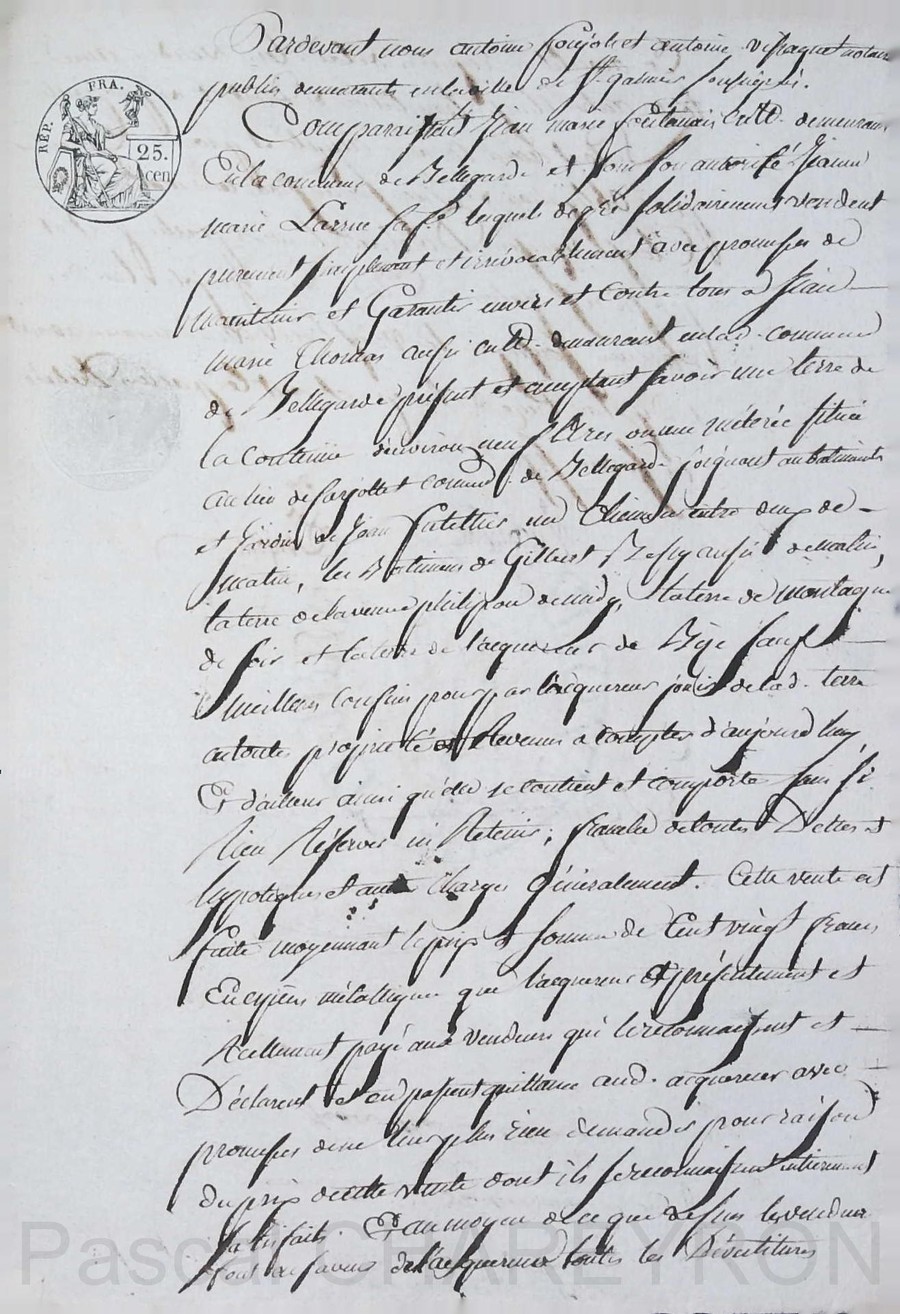 RÉP. FRA.
25. cen
Pardevant nous antoine et antoine notaires
publics demeurants en la ville de St galmier soussignés.
Comparaissent Jean marie cultr. demeurant
En la commune de Bellegarde et sous son autorité Jeanne
marie sa fe. lesquels de gré solidairement vendent
purement simplement et irrévocablement avec promesse de
maintenir et Garantir envers et contre tous a Jean
marie Thomas aussi cultr. demeurant en lad. commune
de Bellegarde présent et acceptant savoir une terre de
la contenue d'environ neuf Ares ou une méterée située
au lieu de commune de Bellegarde joignant au batiments
et Jardin de Jean un Chemin entre deux de
matin, les Batiments de Gilbert aussi de matin,
la terre de la veuve philipon de midy, la terre de montagne
de soir et la terre de l'acquereur de Bize sauf
meilleurs confins pour par l'acquereur jouir de lad. terre
en toute propriété et Revenus a compter d'aujourd'huy
Et d'ailleur ainsi qu'elle se contient et comporte sans s'i
Rien Réserver ni Retenir, franche de toutes Dettes et
hypoteques et autre Charges Généralement. Cette vente est
faite moyennant le prix et somme de Cent vingt francs
En espèces métallique que l'acquereur a présentement et
Réellement payé aux vendeurs qui le reconnaissent et
Déclarent et en passent quittance aud. acquereur avec
promesse de ne leur plus rien demander pour raison
du prix de cette vente dont ils se reconnaissent entierement
satisfaits. Et au moyen de ce que dessus les vendeurs
font en faveur de l'acquereur toutes les Dévetitures
Pascal CHAREYRON